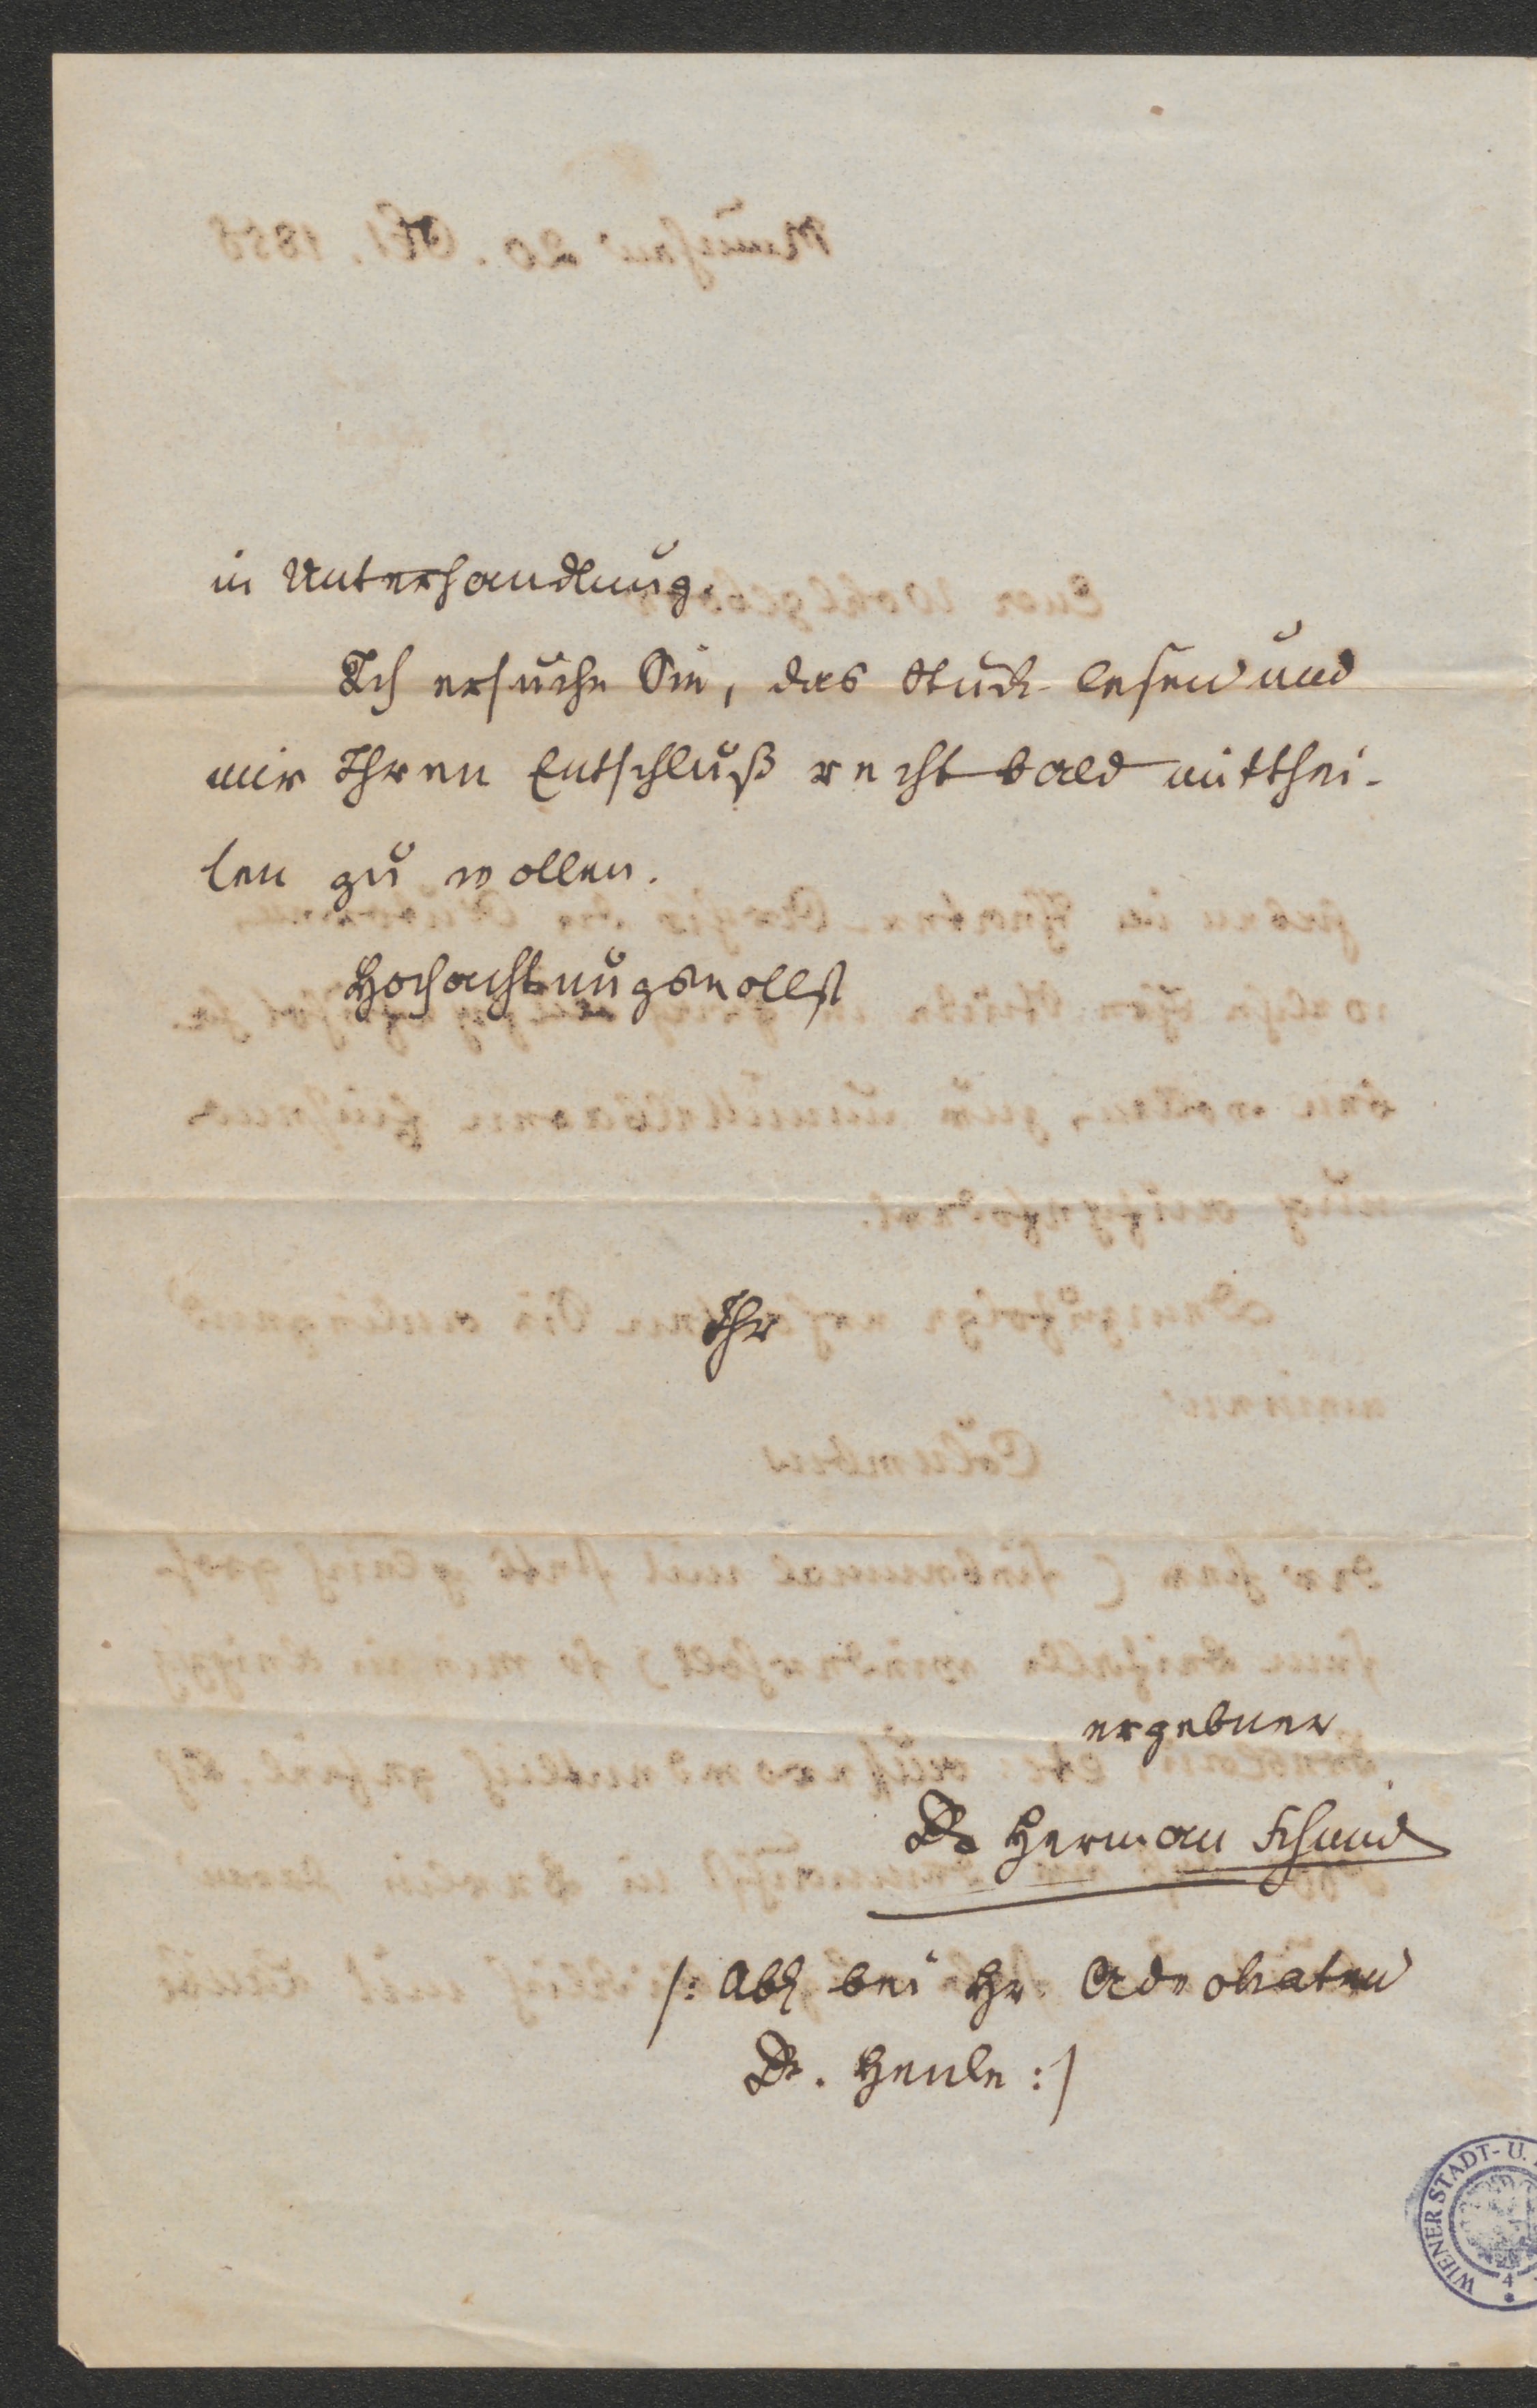 in Unterhandlung.
Ich ersuche Sie, das Stück lesen und
mir Ihren Entschluß recht bald mitthei-
len zu wollen.
Hochachtungsvollst
Ihr
ergebner
Dr Herman Schmid
/: Abz bei Hr. Advokaten
Dr. Henle :/
WIENER STADT- U.
4